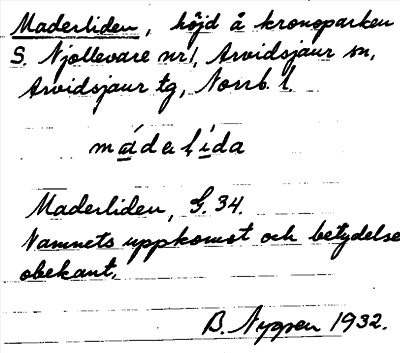 Maderliden, höjd å kronoparken
S. Njallevare nr 1, Arvidsjaur sn,
Arvidsjaur tg, Norrb. l.
Maderliden, G. 34.
Namnets uppkomst och betydelse
obekant.
B. Nygren 1932.